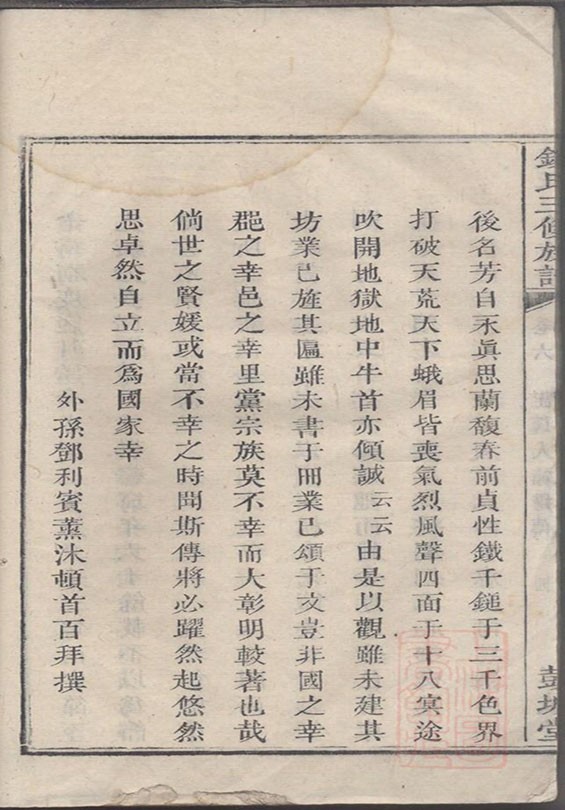 鍾氏三修族譜
卷六
彭城堂
後名芳自禾眞思蘭馥春前貞性鐵千鎚于三千色界
打破天荒天下蛾眉皆喪氣烈風聲四面于十八冥途
吹開地獄地中牛首亦傾誠云云由是以觀雖未建其
坊業已旌其匾雖未書于冊業已頌于文豈非國之幸
郡之幸邑之幸里黨宗族莫不幸而大彰明較著也哉
倘世之賢媛或當不幸之時聞斯傳將必躍然起悠然
思卓然自立而爲國家幸
外孫鄧利賓薰沐頓首百拜撰